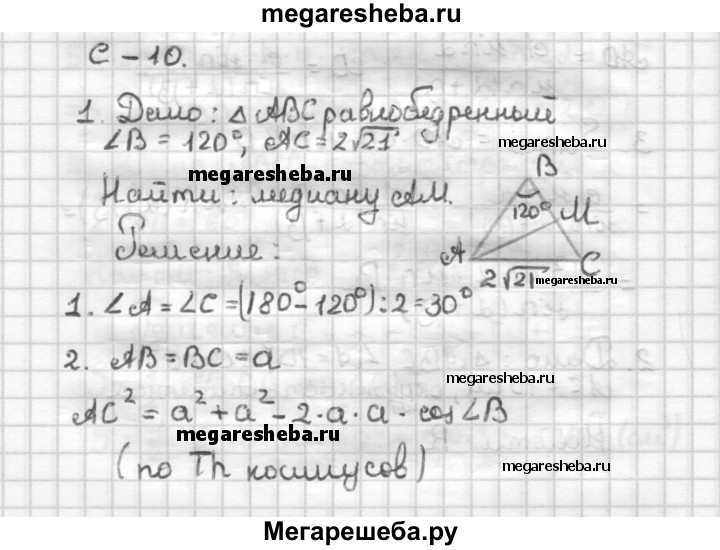 megaresheba.ru
С – 10.
1. Дано: △ ABC равнобедренный
∠B = 120°, AC = 2√21
megaresheba.ru
megaresheba.ru
Найти: медиану AM.
B
120°
M
Решение:
A
C
2√21
megaresheba.ru
1. ∠A = ∠C = (180° – 120°) : 2 = 30°
2. AB = BC = a
megaresheba.ru
AC² = a² + a² – 2·a·a·cos∠B
megaresheba.ru
(по Th косинусов)
megaresheba.ru
Мегарешеба.ру